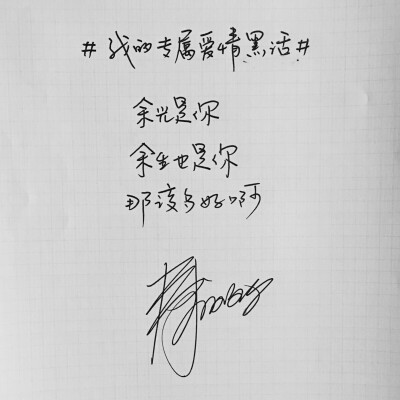 #我的专属爱情黑话#
余光是你
余生也是你
那该多好啊